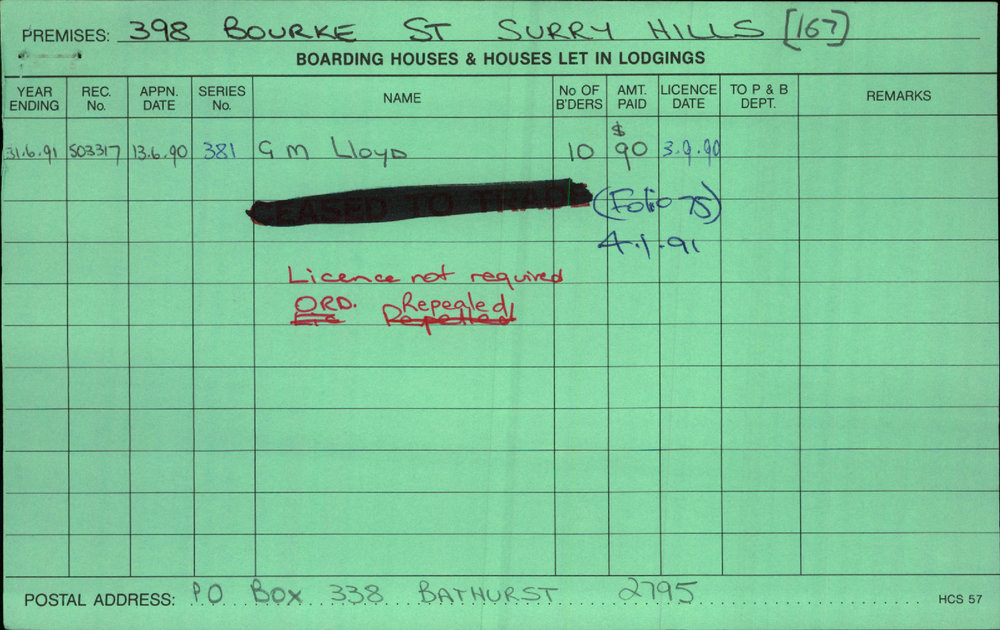 PREMISES: 398 BOURKE ST SURRY HILLS [167]
BOARDING HOUSES & HOUSES LET IN LODGINGS
YEAR ENDING REC. No. APPN. DATE SERIES No. NAME No OF B'DERS AMT. PAID LICENCE DATE TO P & B DEPT. REMARKS
31.6.91 503317 13.6.90 381 G M Lloyd 10 $ 90 3.9.90
CEASED TO TRADE (Folio 75)
4.1.91
Licence not required
ORD. Repealed
POSTAL ADDRESS: PO BOX 338 BATHURST 2795 HCS 57